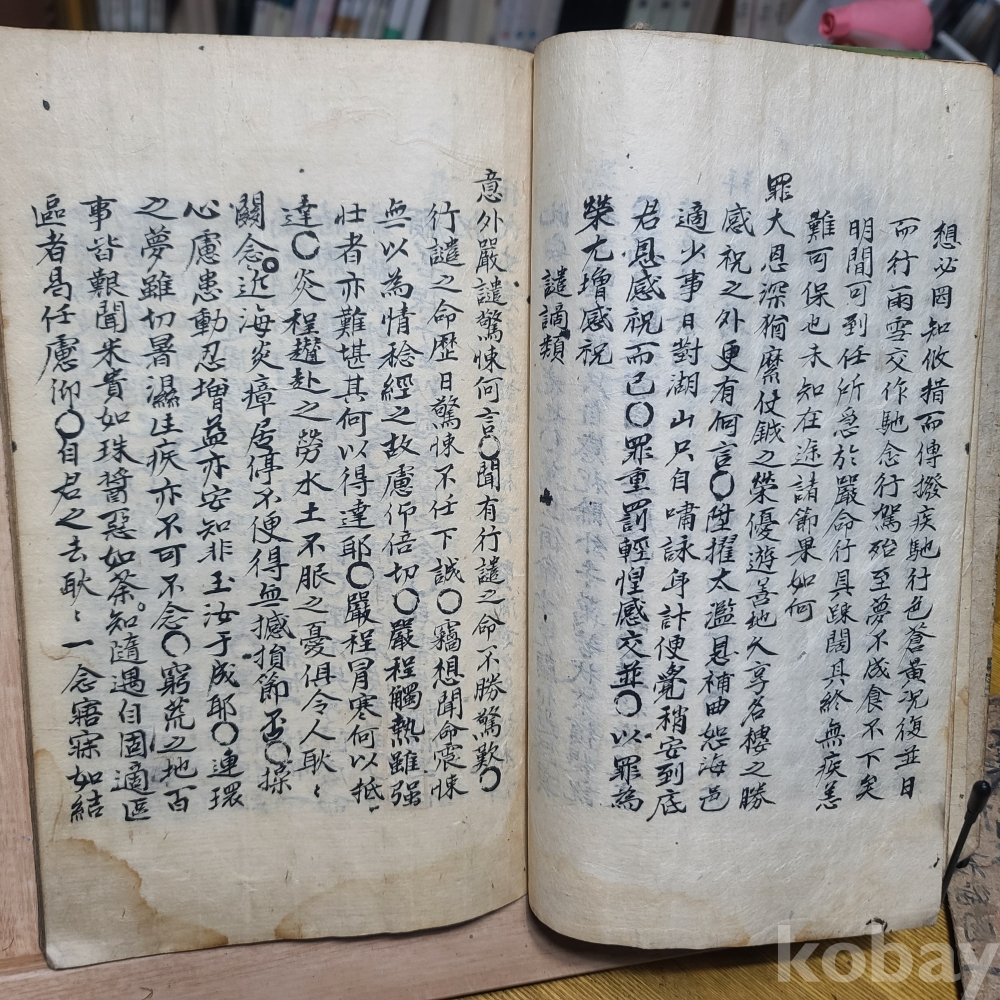 想必罔知攸措而傳撥疾馳行色蒼黃況復並日
而行雨雪交作馳念行駕殆至夢不成食不下矣
明間可到任所急於嚴命行具踈闊其終無疾恙
難可保也未知在途諸節果如何
罪大恩深猶縻仗鉞之榮優遊善地久享名樓之勝
感祝之外更有何言○陞擢太濫恩補曲恕海邑
適少事日對湖山只自嘯詠身計便覺稍安到底
君恩感祝而已○罪重罰輕惶感交並○以罪為
榮尤增感祝
譴謫類
意外嚴譴驚悚何言○聞有行譴之命不勝驚歎○
行譴之命歷日驚悚不任下誠○竊想聞命震悚
無以為情稔經之故慮仰倍切○嚴程觸熱雖强
壯者亦難堪其何以得達耶○嚴程冒寒何以抵
達○炎程趲赴之勞水土不服之憂俱令人耿〻
關念○近海炎瘴居停不便得無撼損節否○操
心慮患動忍增益亦安知非玉汝于成耶○連環
之夢雖切暑濕生疾亦不可不念○窮荒之地百
事皆艱聞米貴如珠醬惡如茶知隨遇自固適區
區者曷任慮仰○自君之去耿〻一念寤寐如結
kobay